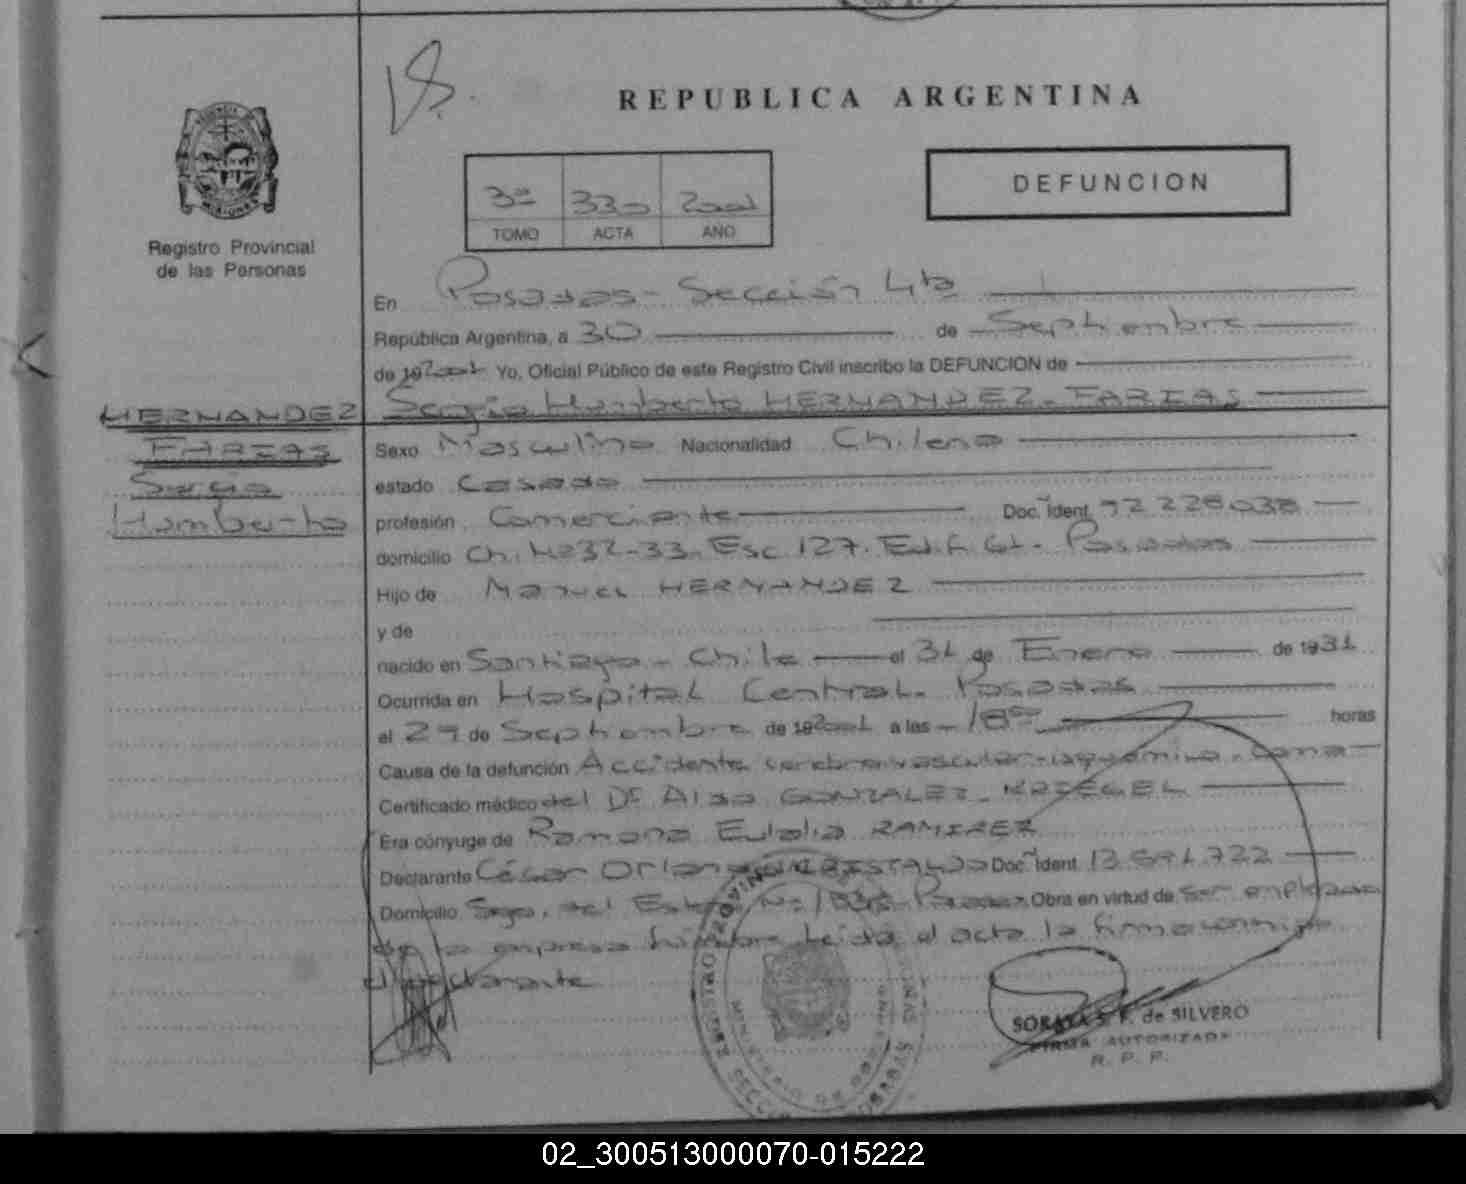 REPUBLICA ARGENTINA
3º 330 2001
TOMO ACTA AÑO
DEFUNCION
Registro Provincial
de las Personas
En Posadas - Sección 4ta
República Argentina, a 30 de Septiembre
de 19 2001 Yo, Oficial Público de este Registro Civil inscribo la DEFUNCION de
Sergio Humberto HERNANDEZ - FARIAS
HERNANDEZ
FARIAS
Sergio
Humberto
Sexo Masculino Nacionalidad Chilena
estado Casado
profesión Comerciante Doc. Ident. 92.228.038
domicilio Ch. Nº32-33. Esc 127. Edif. Posadas
Hijo de Manuel HERNANDEZ
y de
nacido en Santiago - Chile el 31 de Enero de 1931
Ocurrida en Hospital Central - Posadas
el 29 de Septiembre de 19 2001 a las 18 horas
Causa de la defunción Accidente cerebro vascular - isquémico - Coma
Certificado médico del Dr Aldo GONZALEZ - KRIEGEL
Era cónyuge de Ramona Eulalia RAMIREZ
Declarante César Orlando CRISTALDO Doc. Ident. 13.591.722
Domicilio Sgo. del Estero Nº Posadas Obra en virtud de ser empleado
de la empresa fúnebre. Leida el acta la firma conmigo
el declarante
SORAYA S. F. de SILVERO
FIRMA AUTORIZADA
R. P. P.
02_300513000070-015222